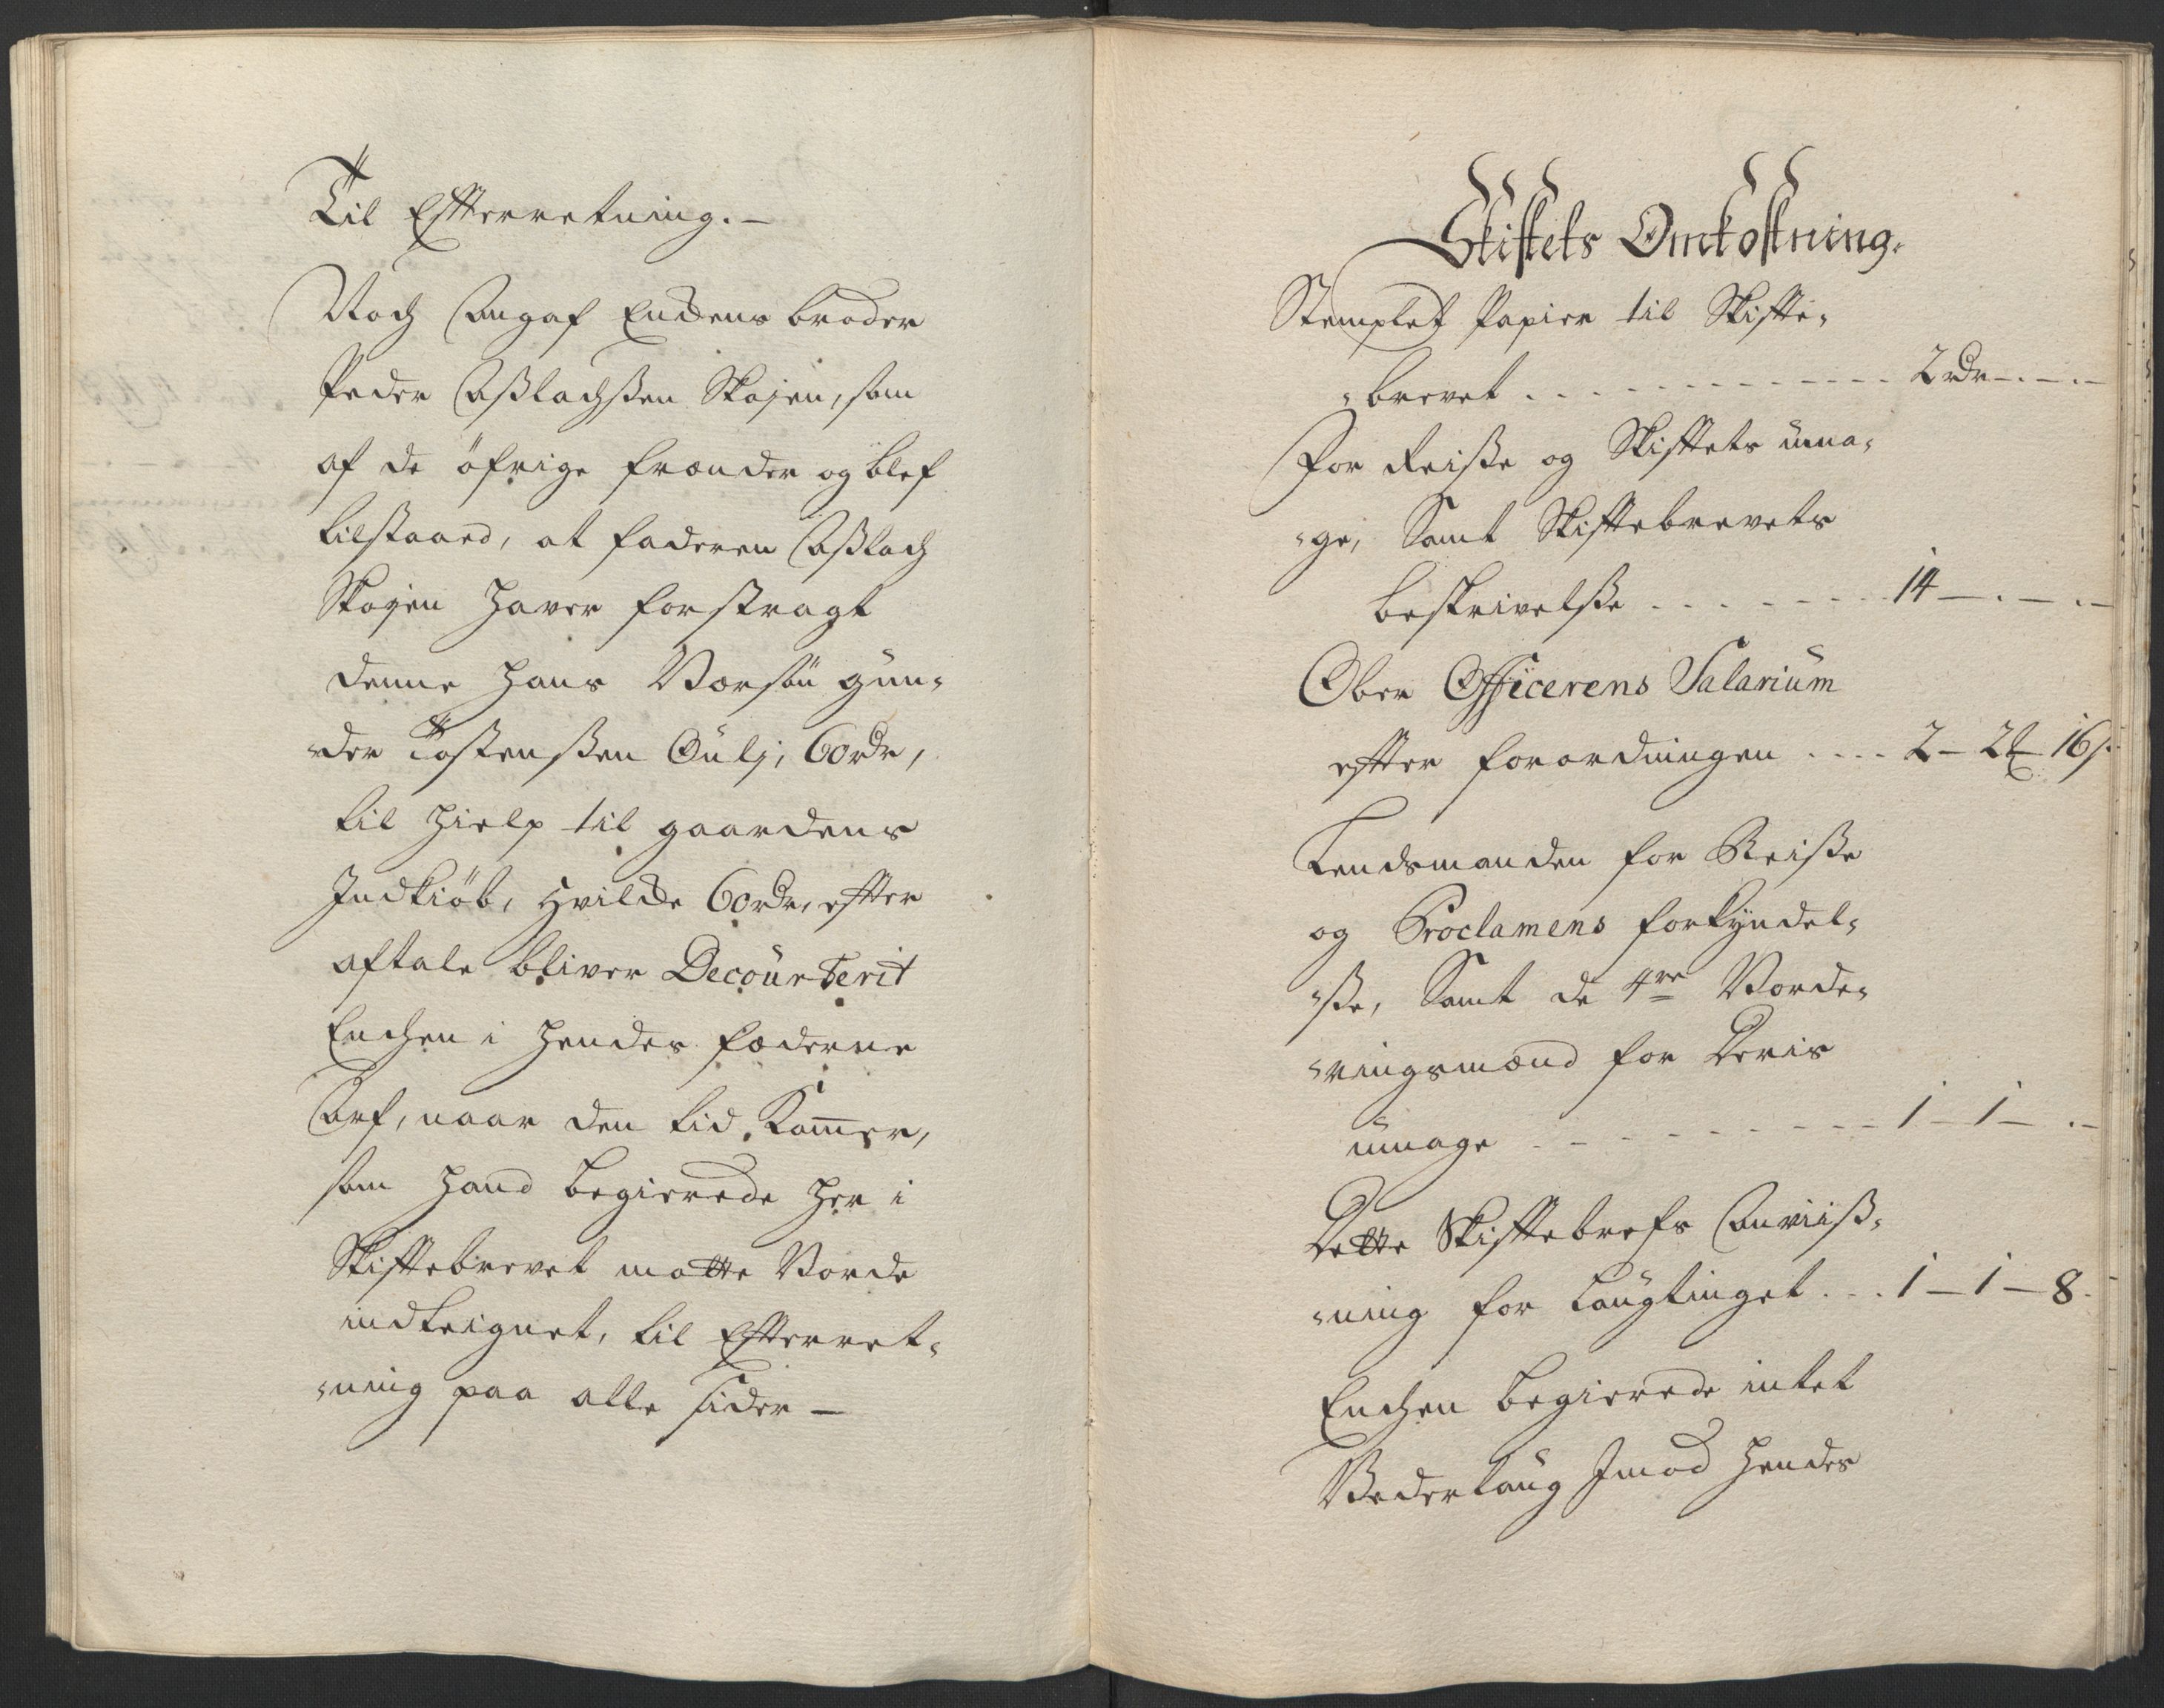 Til Efterretning. –
Noch Angaf Enckens broder
Peder Aßlachßen Skojen, som
af de öfrige frænder og blef
tilstaaed, at faderen Aßlach
Skojen haver forstragt
denne hans Værsön Gun-
-der Tostenßen 60rdr,
til hielp til gaardens
Indkiöb, hvilcke 60rdr, efter
aftale bliver Decourterit
Enchen i hendes fæderne
Arf, naar den tid Kom̄er,
som hand begierede her i
Skiftebrevet motte Vorde
indteignet, til Efterret-
-ning paa alle sider –
Skiftets Omkostning.
Stemplet Papier til Skifte-
-brevet . . . 2rdr – . – . –
For Reiße og Skiftets uma-
-ge, Samt Skiftebrevets
beskrivelße . . . 14 – . – . –
Ober Officerens Salarium
efter forordningen . . . . 2 – 2 – 16 s.
Lendsmanden for Reiße
og Proclamens forkyndel-
-ße, Samt de 4re Vorde-
-ringsmænd for Deris
umage . . . 1 – 1 – . –
Dette Skiftebrefs Anviiß-
-ning for Laugtinget . . . 1 – 1 – 8.
Enchen begierede intet
Vederlaug Imod hendes